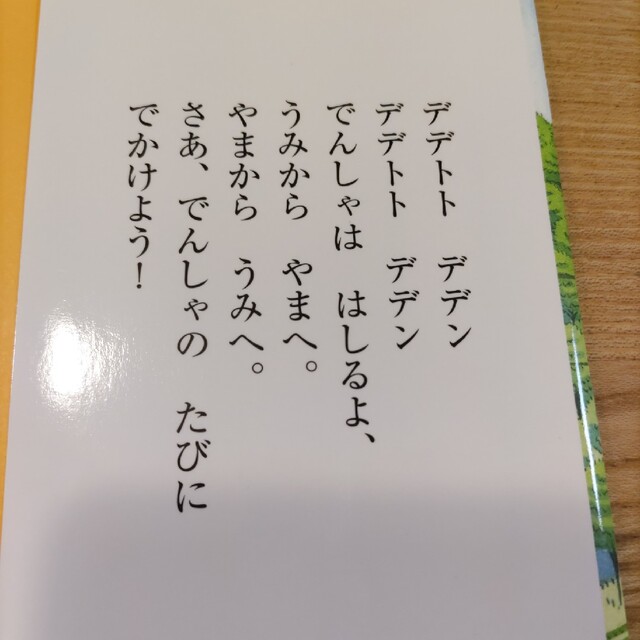 デデトト　デデン
デデトト　デデン
でんしゃは　はしるよ、
うみから　やまへ。
やまから　うみへ。
さあ、でんしゃの　たびに
でかけよう！